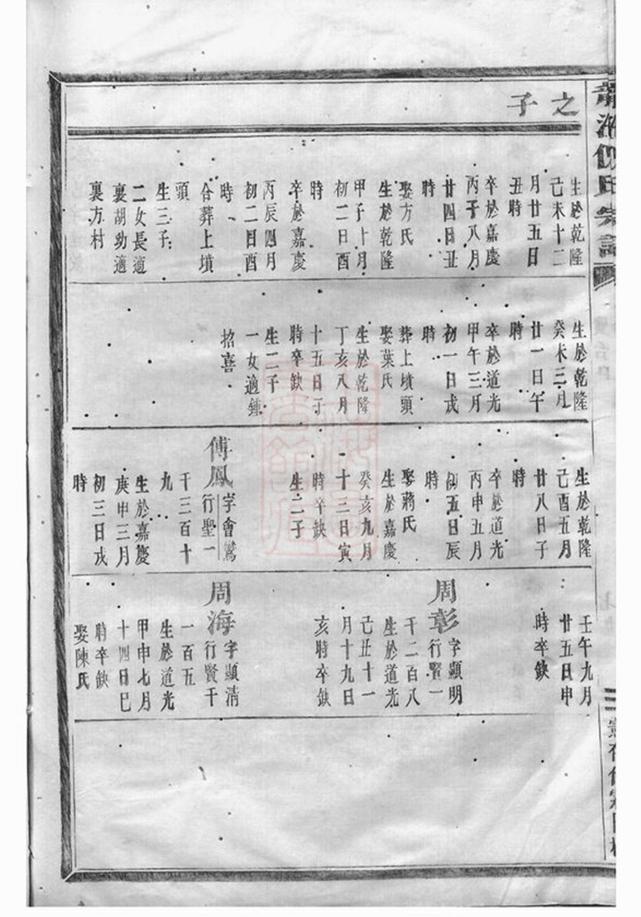 之子
生於乾隆
己未十二
月廿五日
丑時
卒於嘉慶
丙子八月
廿四日丑
時
娶方氏
生於乾隆
甲子十月
初二日酉
時
卒於嘉慶
丙辰四月
初二日酉
時
合葬上墳
頭
生三子
二女長適
裏胡幼適
裏方村
生於乾隆
癸未三月
廿一日午
時
卒於道光
甲午三月
初一日戌
時
葬上墳頭
娶葉氏
生於乾隆
丁亥八月
十五日子
時卒缺
生二子
一女適鍾
招喜
生於乾隆
己酉五月
廿八日子
時
卒於道光
丙申五月
初五日辰
時
娶蔣氏
生於嘉慶
癸亥九月
十三日寅
時卒缺
生二子
傅鳳字會鸞
行聖一
千三百十
九
生於嘉慶
庚申三月
初三日戌
時
壬午九月
廿五日申
時卒缺
周彰字顯明
行賢一
千二百八
生於道光
己丑十一
月十九日
亥時卒缺
周海字顯清
行賢千
一百五
生於道光
甲申七月
十四日巳
時卒缺
娶陳氏